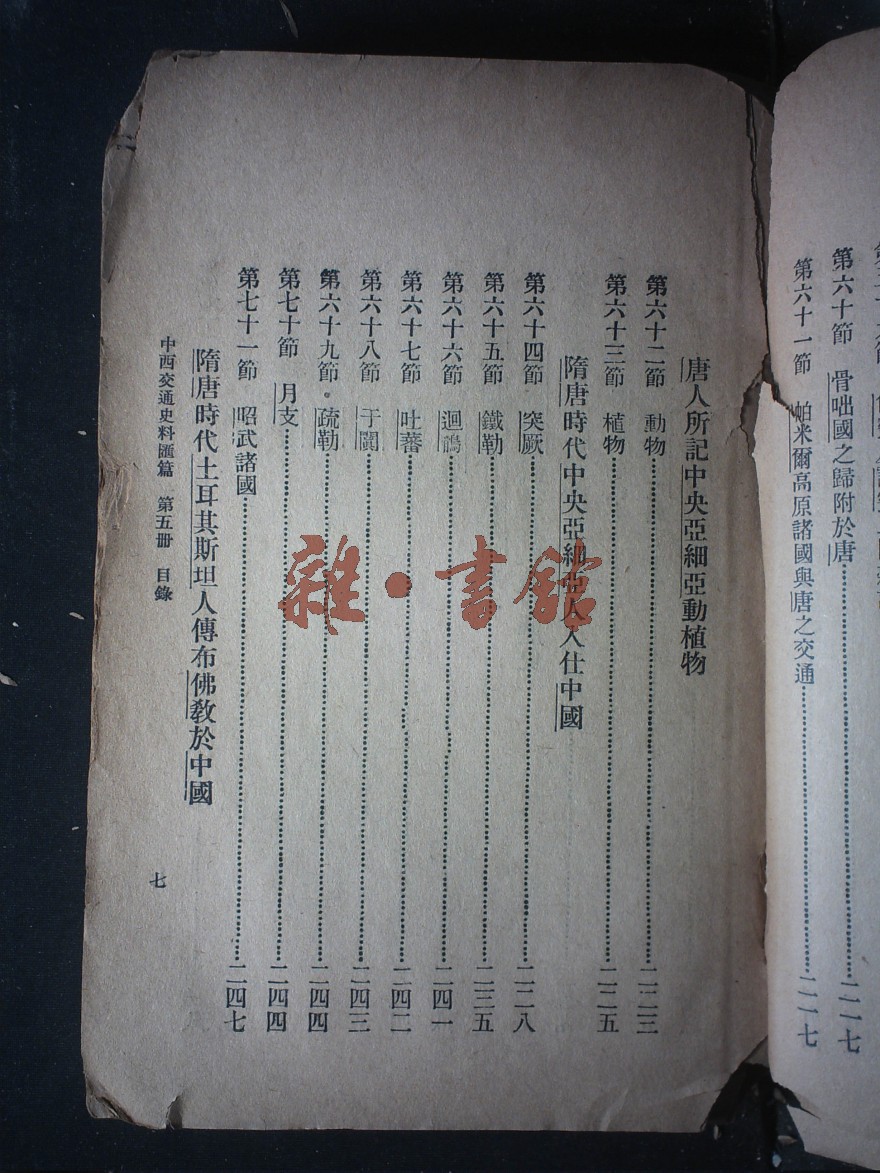 第六十節　骨咄國之歸附於唐……二一七
第六十一節　帕米爾高原諸國與唐之交通……二一七
唐人所記中央亞細亞動植物
第六十二節　動物……二二三
第六十三節　植物……二二五
隋唐時代中央亞細亞人入仕中國
第六十四節　突厥……二二八
第六十五節　鐵勒……二三五
第六十六節　迴鶻……二四一
第六十七節　吐蕃……二四二
第六十八節　于闐……二四三
第六十九節　疏勒……二四四
第七十節　月支……二四四
第七十一節　昭武諸國……二四七
隋唐時代土耳其斯坦人傳布佛教於中國
中西交通史料匯篇　第五册　目錄　七
雜·書館